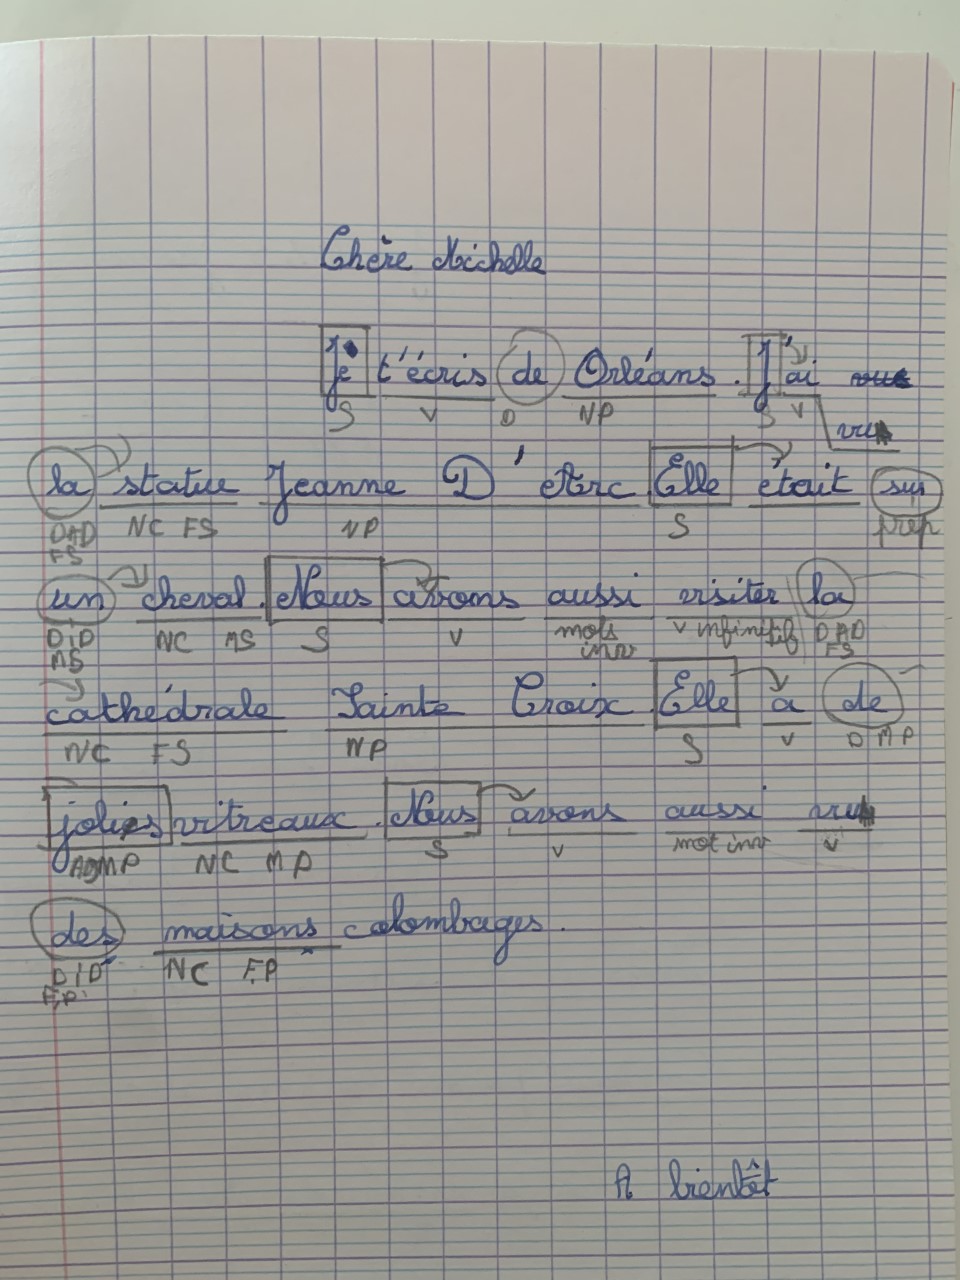 Chère Michelle
Je t'écris de Orléans. J'ai
S V D NP S V
vu
la statue Jeanne D'Arc Elle était sur
DAD NC FS NP S prep
FS
un cheval. Nous avons aussi visiter la
DID NC MS S V mots inv V infinitif DAD
MS FS
cathédrale Sainte Croix. Elle a de
NC FS NP S V D MP
jolies vitreaux. Nous avons aussi vu
ADJ MP NC MP S V mot inv V
des maisons colombages.
DID NC FP
FP
A bientôt